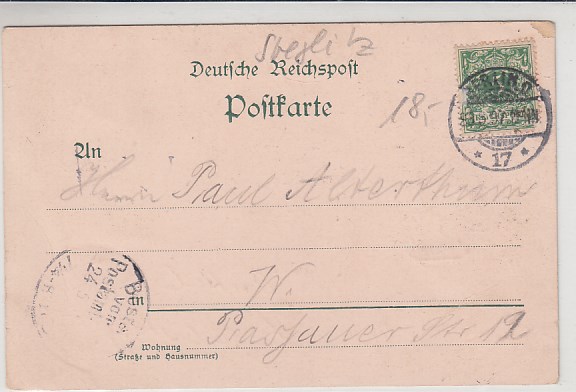 Steglitz
Deutsche Reichspost
Postkarte
18,-
BERLIN O
* 17 *
An
Herrn Paul Alterthum
W.
in
Passauer Str 12
Wohnung
(Straße und Hausnummer)
Bestellt
vom
Postamte
24